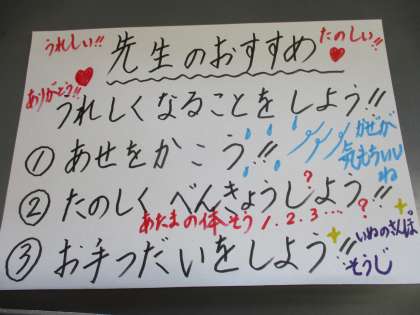 うれしい!!
先生のおすすめ
たのしい!!
ありがとう!!
うれしくなることをしよう!!
①あせをかこう!!
かぜが
気もちいい
ね
②たのしくべんきょうしよう!!
?
あたまの体そう 1.2.3…?
③お手つだいをしよう!!
いぬのさんぽ
そうじ